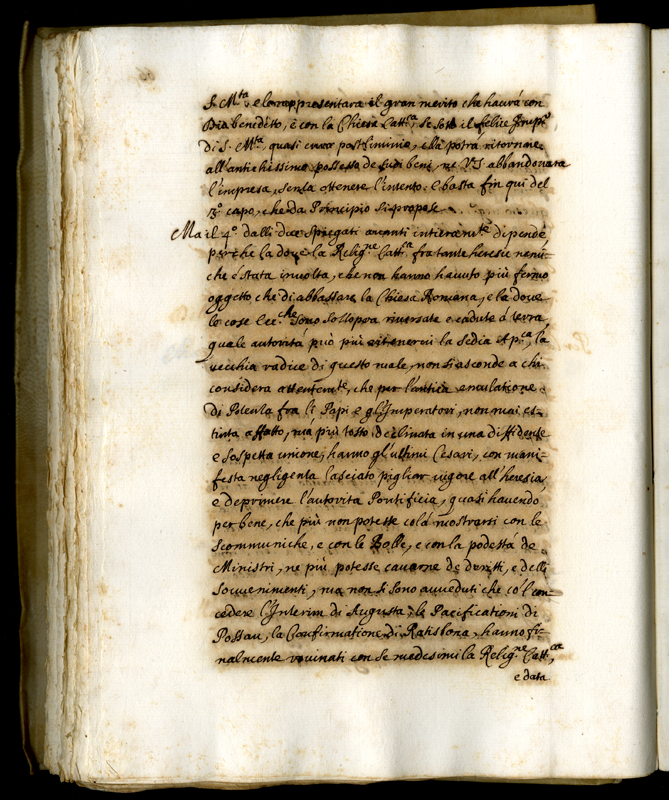 S. Mta, e la rappresentara il gran merito che haurá con
Dio benedetto, e con la Chiesa Cattca, se sotto il felice Imp.o
di S. Mta, quasi iure postliminii, ella potrá ritornare
all'antichissimo possesso de suoi beni, ne V.S. abbandonara
l'impresa senza ottenere l'intento: e basta fin qui del
3.o capo, che da Principio si propose.
Ma il 4.o dalli due spiegati avanti intieramte dipende,
perche la dove la Religne Cattca fra tante heresie nemi=
che é stata involta, che non hanno havuto piu fermo
oggetto che di abbassare la Chiesa Romana, e la dove
le cose Ecc.che sono sottosopra riversate e cadute á terra,
quale autoritá puó piu ritenervi la sedia Apca, la
vecchia radice di questo male, non si asconde a chi
considera attentamte, che per l'antica emulatione
di Potenza fra li Papi e gl'Imperatori, non mai es=
tinta affatto, má piu tosto declinata in una diffidente
e sospetta unione, hanno gl'ultimi Cesari, con mani=
festa negligenza lasciato pigliar vigore all'heresia,
e deprimere l'autorita Pontificia, quasi havendo
per bene, che piu non potesse colá mostrarsi con le
scommuniche, e con le Bolle, e con la podestá de
Ministri, ne piu potesse cavarne de danari, e delli
sovvenimenti, ma non si sono avveduti che co'l con=
cedere l'Interim di Augusta, le Pacificationi di
Possau, la Confirmatione di Ratisbona, hanno fi=
nalmente rovinati con se medesimi la Religne Cattca,
e data